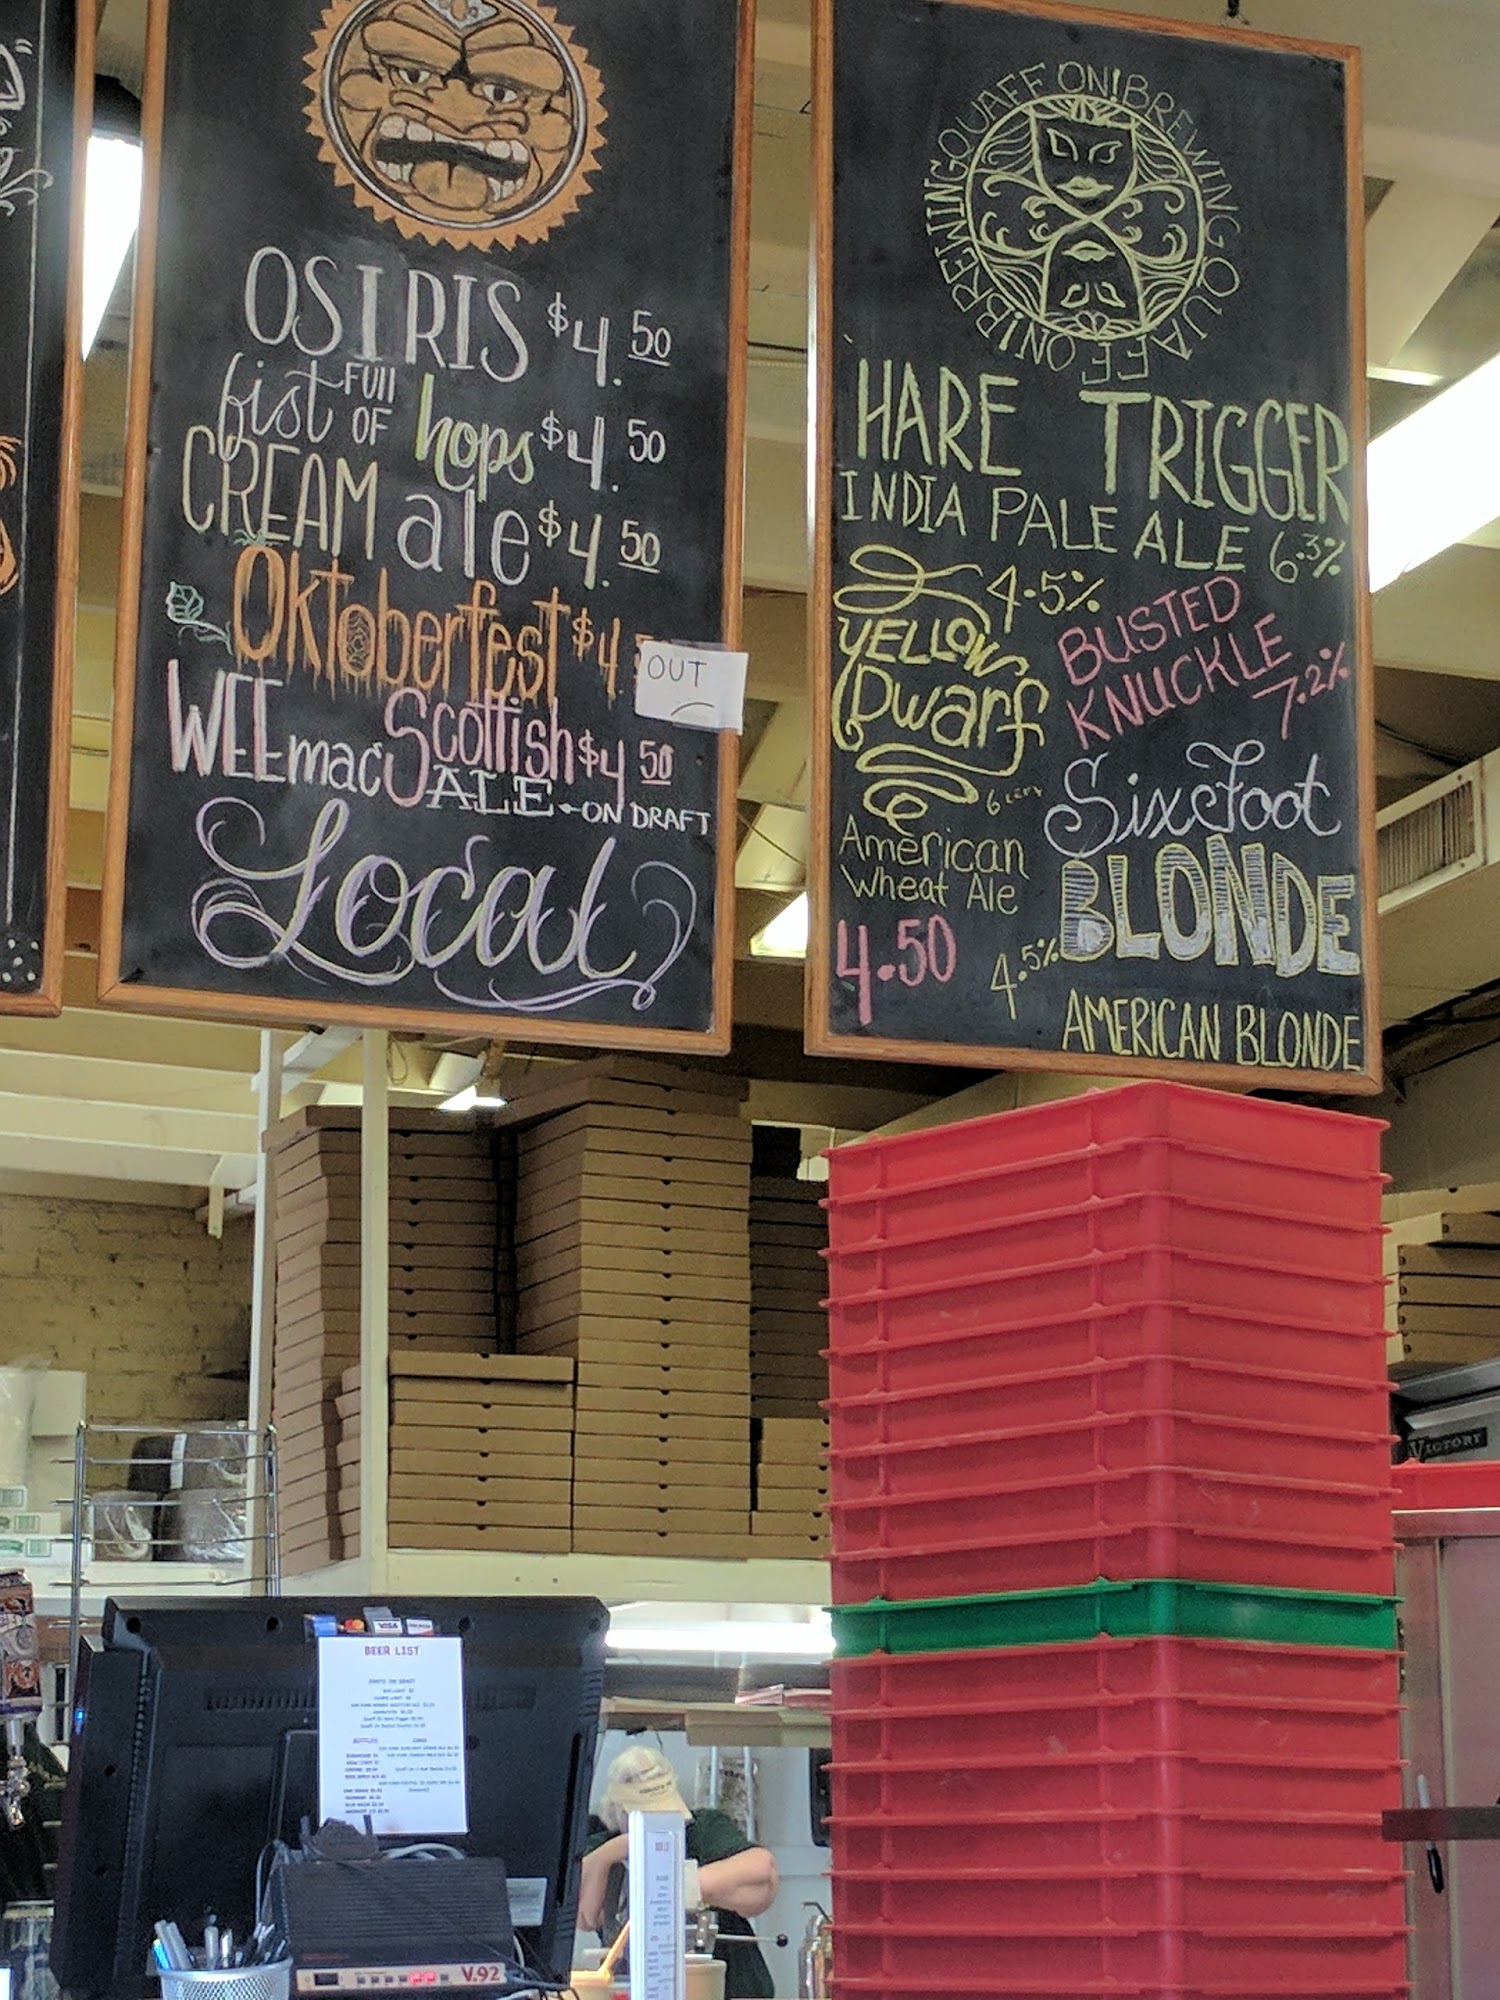 OSIRIS $4.50
fist FULL OF hops $4.50
CREAM ale $4.50
OKToberfest $4.
OUT
WEE mac Scottish $4 50
ALE - ON DRAFT
Local
QUAFF ON! BREWING QUAFF ON! BREWING
HARE TRIGGER
INDIA PALE ALE 6.3%
4.5%
YELLOW
Dwarf
American
Wheat Ale
4.50
BUSTED
KNUCKLE
7.2%
Six Foot
BLONDE
4.5%
AMERICAN BLONDE
VICTORY
VISA
BEER LIST
BOTTLES
CANS
V.92